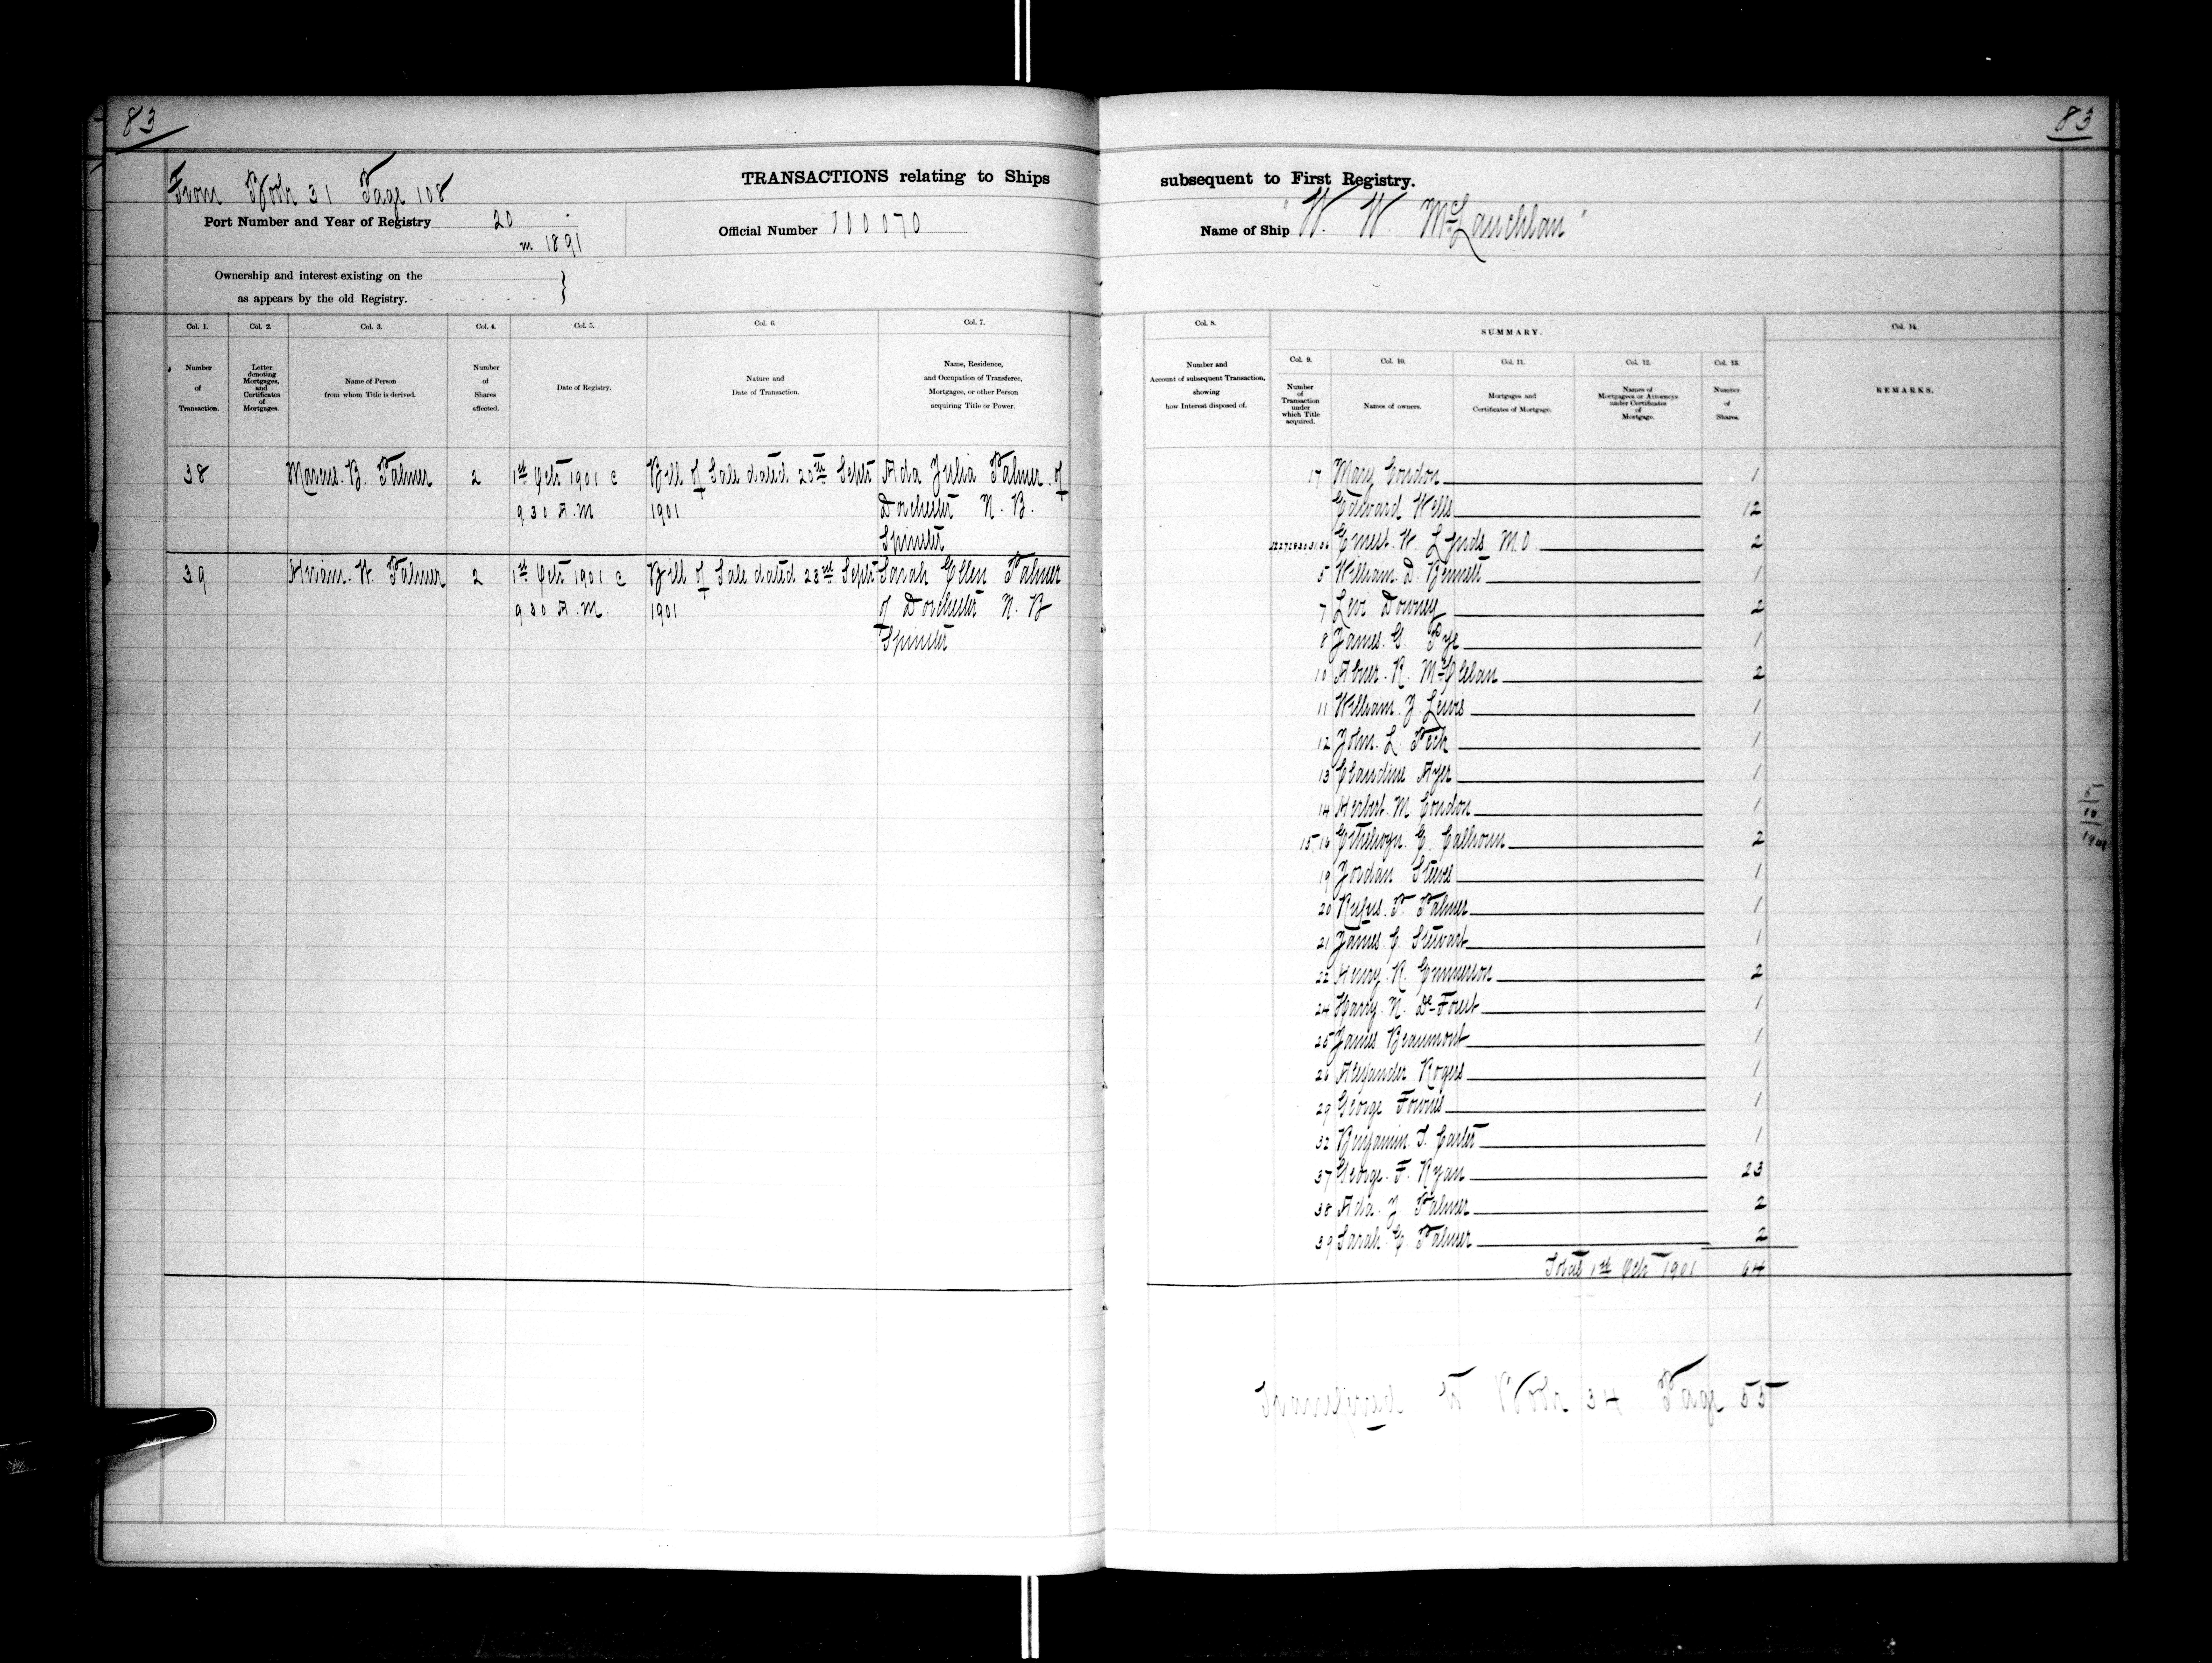 83
83
From Book 31 Page 108
TRANSACTIONS relating to Ships
subsequent to First Registry.
Port Number and Year of Registry 20
in 1891
Official Number 100070
Name of Ship "W. W. McLauchlan"
Ownership and interest existing on the
as appears by the old Registry.
Col. 1.
Number
of
Transaction.
Col. 2.
Letter
denoting
Mortgages,
and
Certificates
of
Mortgages.
Col. 3.
Name of Person
from whom Title is derived.
Col. 4.
Number
of
Shares
affected.
Col. 5.
Date of Registry.
Col. 6.
Nature and
Date of Transaction.
Col. 7.
Name, Residence,
and Occupation of Transferee,
Mortgagee, or other Person
acquiring Title or Power.
Col. 8.
Number and
Account of subsequent Transaction,
showing
how Interest disposed of.
SUMMARY.
Col. 9.
Number
of
Transaction
under
which Title
acquired.
Col. 10.
Names of owners.
Col. 11.
Mortgages and
Certificates of Mortgage.
Col. 12.
Names of
Mortgagees or Attorneys
under Certificates
of
Mortgage.
Col. 13.
Number
of
Shares.
Col. 14.
REMARKS.
38 Marcus. B. Palmer 2 1st Oct 1901 @ Bill of Sale dated 20th Sept Ada Julia Palmer of
9.30 A.M 1901 Dorchester N. B.
Spinster
39 Hiram. W. Palmer 2 1st Oct 1901 @ Bill of Sale dated 23rd Sept Sarah Ellen Palmer
9.30 A.M. 1901 of Dorchester N. B
Spinster
17 Mary Condon 1
Edward Wells 12
Ernest. W. Lynds M.O. 2
5 William. D. Bennett 1
7 Levi Downey 2
8 James. G. Pye 1
10 Abner. R. McClelan 2
11 William. J. Lewis 1
12 John. L. Peck 1
13 Claudine Ayer 1
14 Herbert. M. Condon 1
15.16 Ethelwyn. E. Calhoun 2
19 Jordan Steeves 1
20 Rufus. P. Palmer 1
21 James. C. Stewart 1
22 Henry. R. Emmerson 2
24 Harry. N. De-Forest 1
25 James Beaumont 1
26 Alexander Rogers 1
29 George Fownes 1
32 Benjamin. T. Carter 1
37 George. F. Ryan 23
38 Ada. J. Palmer 2
39 Sarah. E. Palmer 2
Total 1st Oct 1901 64
5
10
Transferred to Book 34 Page 55